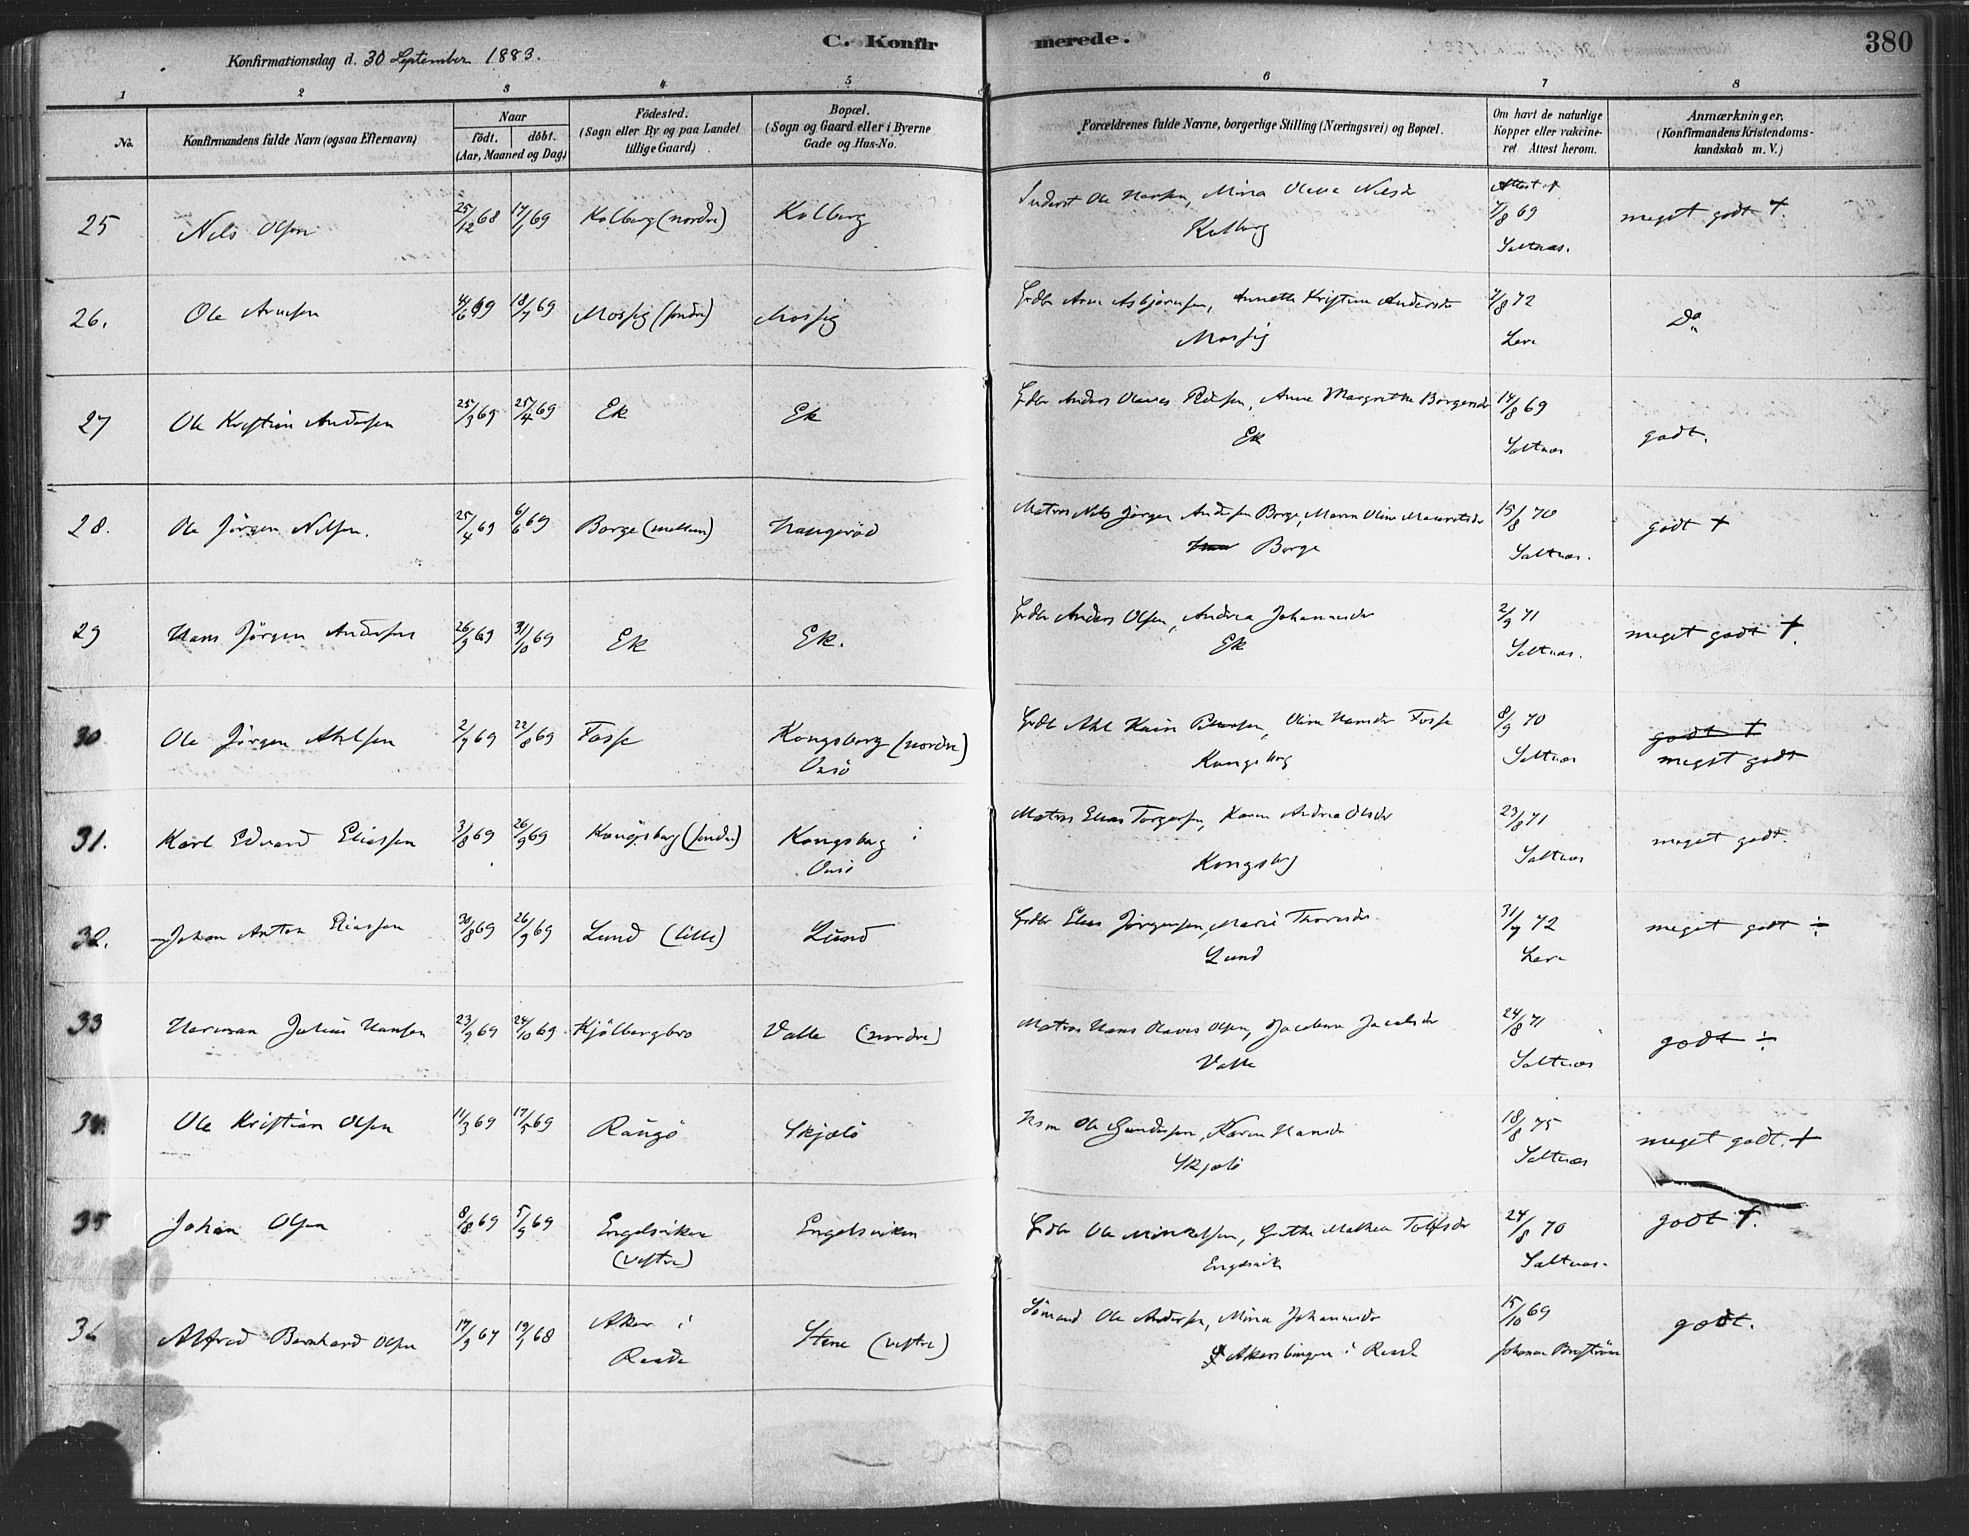 C. Konfirmerede.
380
Konfirmationsdag d. 30 September 1883.
1 2 3 4 5 6 7 8
No.
Konfirmandens fulde Navn (ogsaa Efternavn)
Naar
födt. döbt.
(Aar, Maaned og Dag)
Födested.
(Sogn eller By og paa Landet
tillige Gaard)
Bopæl.
(Sogn og Gaard eller i Byerne
Gade og Hus-No.
Forældrenes fulde Navne, borgerlige Stilling (Næringsvei) og Bopæl.
Om havt de naturlige
Kopper eller vakcine-
ret Attest herom.
Anmærkninger,
(Konfirmandens Kristendoms-
kundskab m. V.)
25 Nils Olsen 25/12 68 17/1 69 Kolberg (nordre) Kolberg Inderst Ole Hansen, Mina Olena Nilsdr
Kolberg
7/8 69
Saltnæs.
meget godt +.
26. Ole Arnesen 4/6 69 18/7 69 Mossig (söndre) Mossig Grdbr Arne Asbjörnsen, Annette Kristine Andersdr
Mossig
7/8 72
Lere
Do
27 Ole Kristian Andersen 25/3 69 25/4 69 Ek Ek Grdbr Anders Olaves, Anne Margrethe Börgesdr
Ek
14/8 69
Saltnæs
godt.
28. Ole Jörgen Nilsen. 25/4 69 6/6 69 Borge (mellem) Haugeröd Matros Nils Jörgen Andersen Borge, Maren Oline
Borge
15/8 70
Saltnæs.
godt +
29 Hans Jörgen Andersen 26/9 69 31/10 69 Ek Ek. Grdbr Anders Olsen, Andrea Johannesdr
Ek
2/9 71
Saltnæs.
meget godt +.
30 Ole Jörgen Akelsen 2/7 69 22/8 69 Fosse Kongsberg (nordre)
Onsö
Grdbr Hansdr Fosse
Kongsberg
8/9 70
Saltnæs
godt +
meget godt
31. Karl Edvard Eliassen 3/8 69 26/9 69 Kongsberg (söndre) Kongsberg i
Onsö
Matros Elias Torgersen, Karen Andrea Olsdr
Kongsberg
23/8 71
Saltnæs
meget godt.
32. Johan Anton Eliassen 30/8 69 26/9 69 Lund (lille) Lund Grdbr Elias Jörgensen, Marie Thoresdr
Lund
31/7 72
Lere
meget godt ÷
33 Herman Julius Hansen 23/9 69 24/10 69 Kjölbergbro Valle (nordre) Matros Hans Olaves Olsen, Jacobine Jacobsdr
Valle
24/8 71
Saltnæs
godt ÷
34. Ole Kristian Olsen 11/3 69 17/5 69 Raugö Skjælö Hsm Ole Gundersen, Karen Hansdr
Skjælö
18/8 75
Saltnæs
meget godt. +
35 Johan Olsen 8/8 69 5/9 69 Engelsviken
(vestre)
Engelsviken Grdbr Ole Mikkelsen, Grethe Mathea Tolfsdr
Engelsvik
24/8 70
Saltnæs.
godt +.
36 Alfred Bernhard Olsen 17/9 67 19/1 68 Aker i
Raade
Stene (vestre) Sömand Ole Andersen, Mina Johannesdr
Akersbingen i Raade
15/10 69
Johanne
godt.